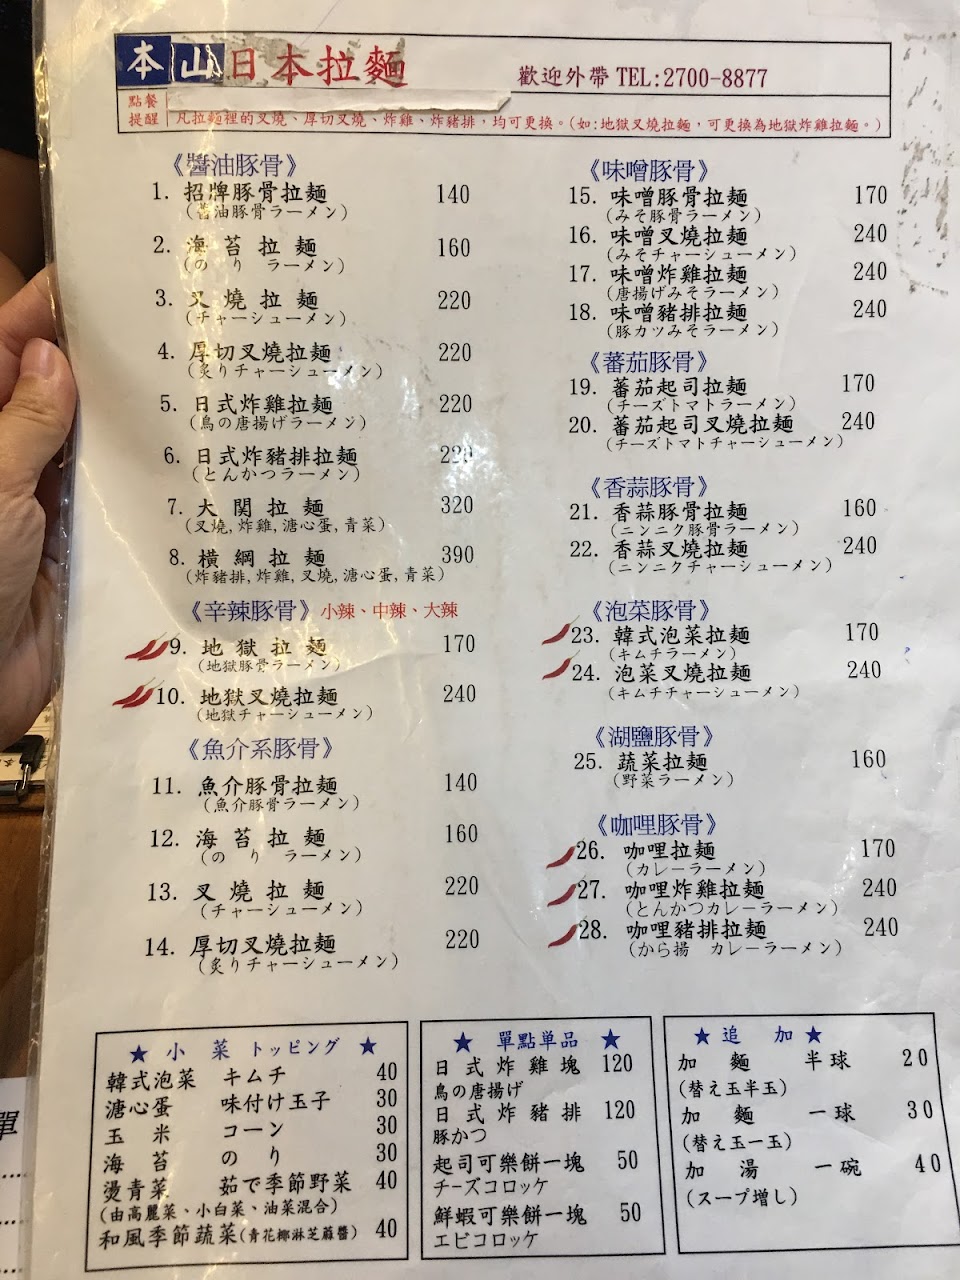 本山日本拉麵
歡迎外帶 TEL:2700-8877
點餐提醒 凡拉麵裡的叉燒、厚切叉燒、炸雞、炸豬排，均可更換。(如:地獄叉燒拉麵，可更換為地獄炸雞拉麵。)
《醬油豚骨》
1. 招牌豚骨拉麵 140
(醤油豚骨ラーメン)
2. 海苔拉麵 160
(のり ラーメン)
3. 叉燒拉麵 220
(チャーシューメン)
4. 厚切叉燒拉麵 220
(炙りチャーシューメン)
5. 日式炸雞拉麵 220
(鳥の唐揚げラーメン)
6. 日式炸豬排拉麵 220
(とんかつラーメン)
7. 大関拉麵 320
(叉燒,炸雞,溏心蛋,青菜)
8. 橫綱拉麵 390
(炸豬排,炸雞,叉燒,溏心蛋,青菜)
《辛辣豚骨》小辣、中辣、大辣
9. 地獄拉麵 170
(地獄豚骨ラーメン)
10. 地獄叉燒拉麵 240
(地獄チャーシューメン)
《魚介系豚骨》
11. 魚介豚骨拉麵 140
(魚介豚骨ラーメン)
12. 海苔拉麵 160
(のり ラーメン)
13. 叉燒拉麵 220
(チャーシューメン)
14. 厚切叉燒拉麵 220
(炙りチャーシューメン)
《味噌豚骨》
15. 味噌豚骨拉麵 170
(みそ豚骨ラーメン)
16. 味噌叉燒拉麵 240
(みそチャーシューメン)
17. 味噌炸雞拉麵 240
(唐揚げみそラーメン)
18. 味噌豬排拉麵 240
(豚カツみそラーメン)
《蕃茄豚骨》
19. 蕃茄起司拉麵 170
(チーズトマトラーメン)
20. 蕃茄起司叉燒拉麵 240
(チーズトマトチャーシューメン)
《香蒜豚骨》
21. 香蒜豚骨拉麵 160
(ニンニク豚骨ラーメン)
22. 香蒜叉燒拉麵 240
(ニンニクチャーシューメン)
《泡菜豚骨》
23. 韓式泡菜拉麵 170
(キムチラーメン)
24. 泡菜叉燒拉麵 240
(キムチチャーシューメン)
《湖鹽豚骨》
25. 蔬菜拉麵 160
(野菜ラーメン)
《咖哩豚骨》
26. 咖哩拉麵 170
(カレーラーメン)
27. 咖哩炸雞拉麵 240
(とんかつカレーラーメン)
28. 咖哩豬排拉麵 240
(から揚 カレーラーメン)
★ 小菜 トッピング ★
韓式泡菜 キムチ 40
溏心蛋 味付け玉子 30
玉米 コーン 30
海苔 のり 30
燙青菜 茹で季節野菜 40
(由高麗菜、小白菜、油菜混合)
和風季節蔬菜(青花椰淋芝蔴醬) 40
★ 單點単品 ★
日式炸雞塊 120
鳥の唐揚げ
日式炸豬排 120
豚かつ
起司可樂餅一塊 50
チーズコロッケ
鮮蝦可樂餅一塊 50
エビコロッケ
★ 追加 ★
加麵 半球 20
(替え玉半玉)
加麵 一球 30
(替え玉一玉)
加湯 一碗 40
(スープ増し)
單